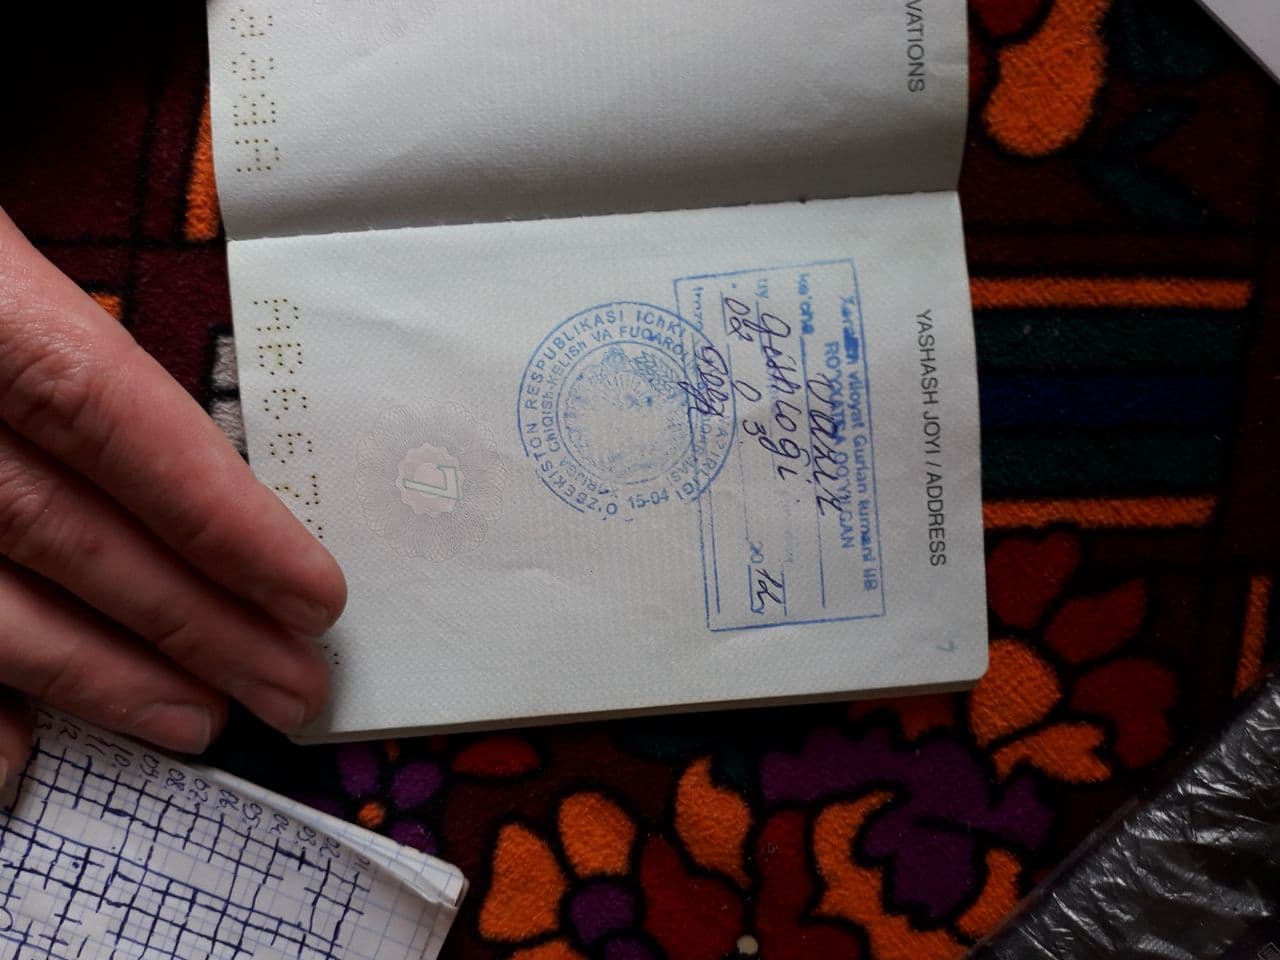 VATIONS
YASHASH JOYI / ADDRESS
7
Xorazm viloyat Gurlan tumani IIB
RO'YXATGA QO'YILGAN
ko'cha Vazir
uy qishlog'i
"02 03. 2012 y
Imzo
O'ZBEKISTON RESPUBLIKASI ICHKI ISHLAR VAZIRLIGI 15-04
XORIJGA CHIQISH-KELISH VA FUQAROLIK
7
AB667
01.
02.
03.
04.
05.
06.
07.
08.
09.
10.
11.
12
13